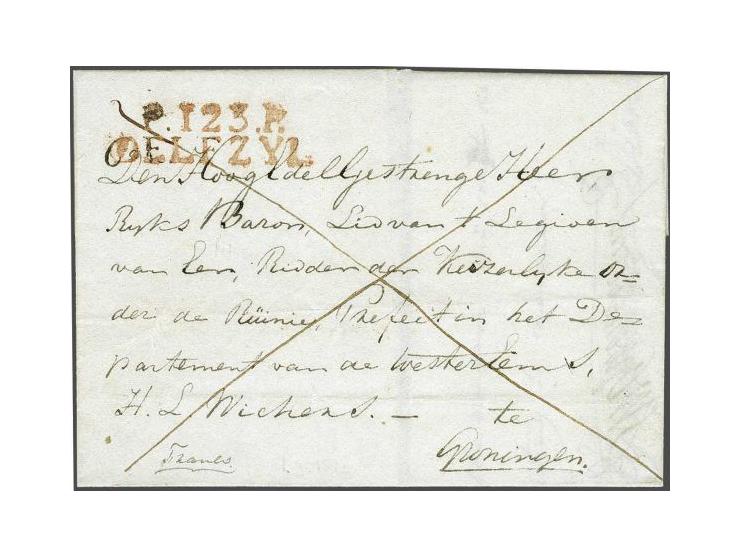 P.123.P.
DELFZYL.
Den Hoog Edel Gestrenge Heer
Ryks Baron, Lid van t Legioen
van Eer, Ridder der Keizerlyke or=
der de Rüinie, Prefect in het De=
partement van de Wester Eems,
H. L Wichers. — te
Groningen.
Franco